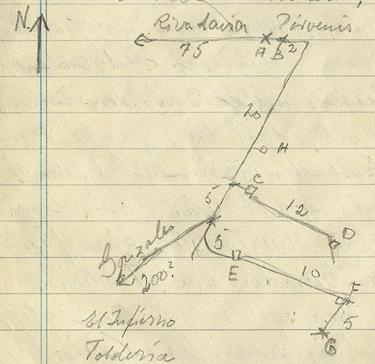 N.
Rivadavia
75
A B 2
20
H
5
C
12
D
Gonzales
200?
5
E
10
F
5
G
El Infierno
Toldería